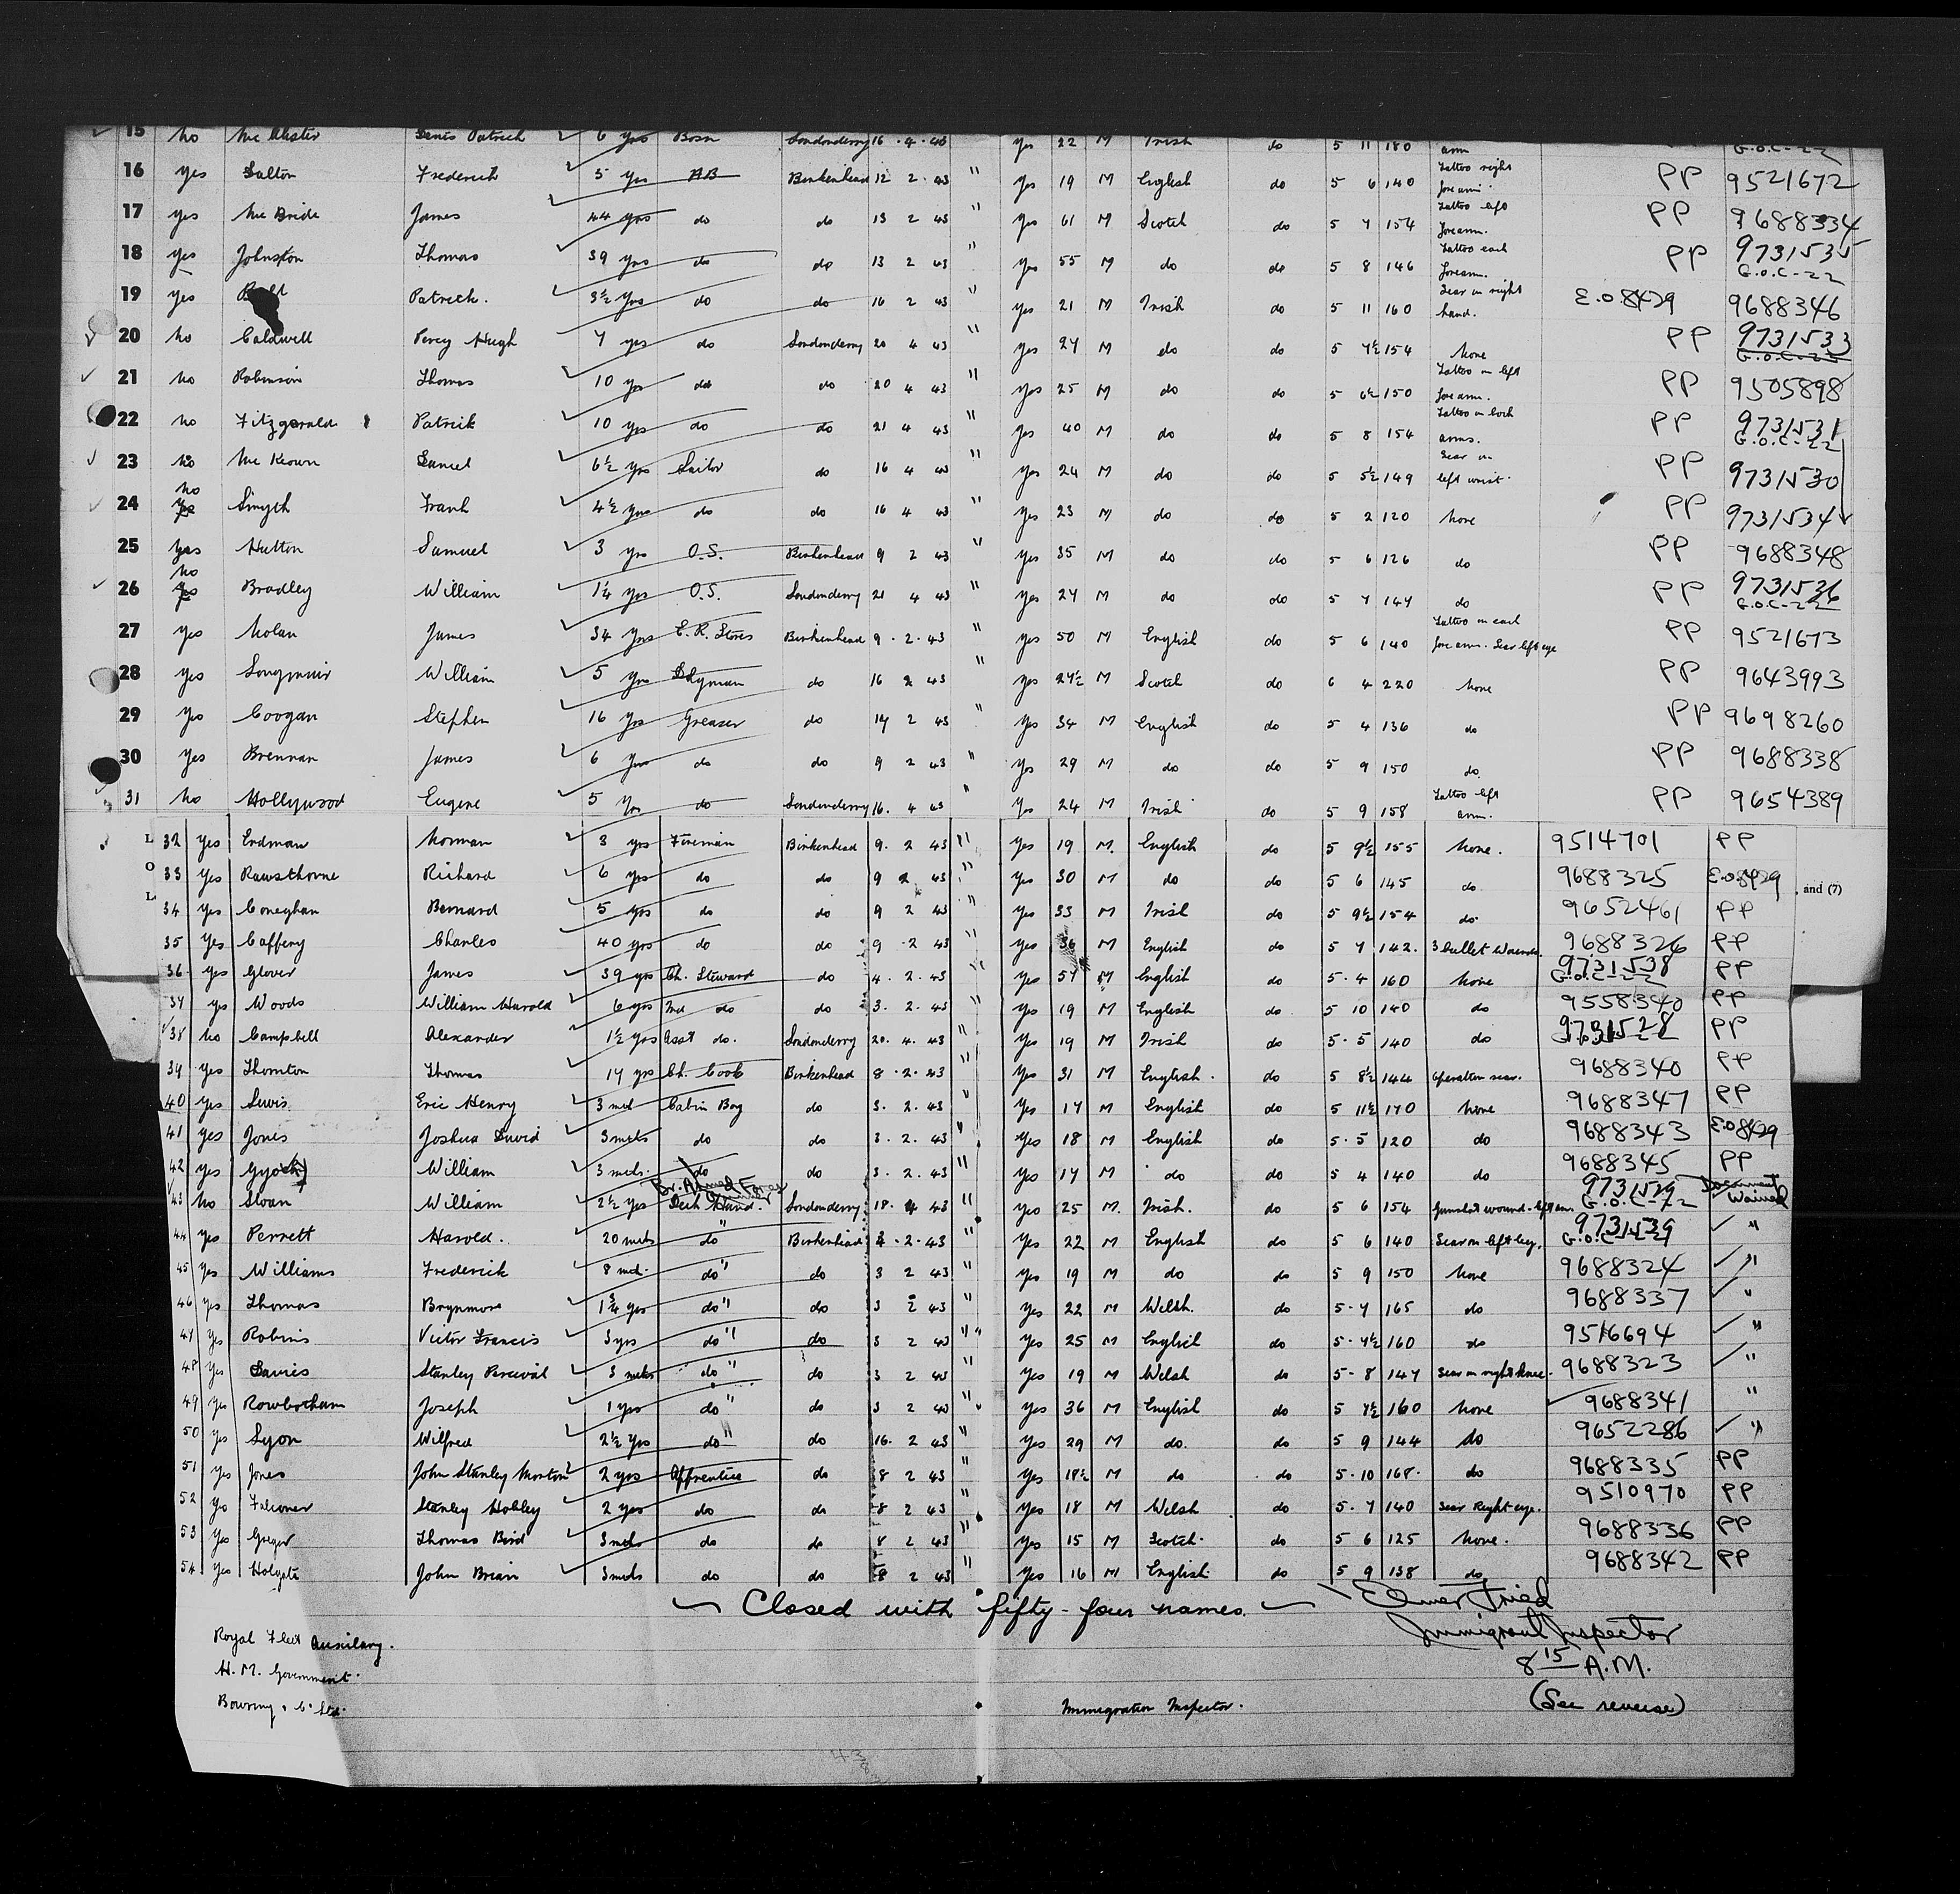 15 No Mc Alister Denis Patrick 6 yrs Bosn Londonderry 16 . 4 . 43 Yes 22 M Irish do 5 11 180 arm G.O.C-22
16 Yes Dalton Frederick 5 yrs AB Birkenhead 12 2 . 43 " Yes 19 M English do 5 6 140 Tattoo right forearm PP 9521672
17 Yes Mc Bride James 44 yrs do do 13 2 43 " Yes 61 M Scotch do 5 7 154 Tattoo left forearm. PP 9688334
18 Yes Johnston Thomas 39 yrs do do 13 2 43 " Yes 55 M do do 5 8 146 Tattoo each forearm. PP 9731535 G.O.C-22
19 Yes Patrick. 3½ Yrs do do 16 2 43 " Yes 21 M Irish do 5 11 160 Scar on right hand. E.O.8429 9688346
20 No Caldwell Percy Hugh 7 yrs do Londonderry 20 4 43 " Yes 27 M do do 5 7½ 154 None PP 9731533 G.O.C-22
21 No Robinson Thomas 10 yrs do do 20 4 43 " Yes 25 M do do 5 6½ 150 Tattoo on left forearm. PP 9505898
22 No Fitzgerald Patrick 10 yrs do do 21 4 43 " Yes 40 M do do 5 8 154 Tattoo on both arms. PP 9731531 G.O.C-22
23 No Mc Keown Daniel 6½ yrs Sailor do 16 4 43 " Yes 24 M do do 5 5½ 149 Scar on left wrist. PP 9731530
24 No Yes Smyth Frank 4½ yrs do do 16 4 43 " Yes 23 M do do 5 2 120 None PP 9731534
25 Yes Hutton Samuel 3 yrs O.S. Birkenhead 9 2 43 " Yes 35 M do do 5 6 126 do PP 9688348
26 No Yes Bradley William 1¼ yrs O.S. Londonderry 21 4 43 " Yes 27 M do do 5 7 147 do PP 9731536 G.O.C-22
27 Yes Nolan James 34 Yrs E. R. Stores Birkenhead 9 . 2 . 43 " Yes 50 M English do 5 6 140 Tattoo on each forearm. Scar left eye PP 9521673
28 Yes Longmuir William 5 Yrs Dkyman do 16 2 43 " Yes 27½ M Scotch do 6 4 220 None PP 9643993
29 Yes Coogan Stephen 16 Yrs Greaser do 17 2 43 " Yes 34 M English do 5 4 136 do PP 9698260
30 Yes Brennan James 6 Yrs do do 9 2 43 " Yes 29 M do do 5 9 150 do PP 9688338
31 No Hollywood Eugene 5 Yrs do Londonderry 16. 4 43 " Yes 24 M Irish do 5 9 158 Tattoo left arm. PP 9654389
L 32 Yes Erdman Norman 3 yrs Fireman Birkenhead 9. 2 43 " Yes 19 M. English do 5 9½ 155 None. 9514701 PP
O 33 Yes Rawsthorne Richard 6 yrs do do 9 2 43 " Yes 30 M do do 5 6 145 do 9688325 E.O.8429 , and (7)
L 34 Yes Coneghan Bernard 5 yrs do do 9 2 43 " Yes 33 M Irish do 5 9½ 154 do. 9652461 PP
35 Yes Caffery Charles 40 yrs do do 9 . 2 43 " Yes 36 M English do 5 7 142. 3 bullet wounds. 9688326 PP
36 Yes Glover James 39 yrs Ch. Steward do 4. 2. 43 " Yes 57 M English do 5. 4 160 None 9731538 G.O.C-22 PP
37 Yes Woods William Harold 6 yrs 2nd do do 3. 2. 43 " Yes 19 M English do 5 10 140 do 9558340 PP
38 No Campbell Alexander 1½ yrs Asst do. Londonderry 20. 4. 43 " Yes 19 M Irish do 5. 5 140 do 9731528 PP
39 Yes Thornton Thomas 17 yrs Ch. Cook Birkenhead 8 . 2. 43 " Yes 31 M English. do 5 8½ 144 operation scar. 9688340 PP
40 Yes Lewis Eric Henry 3 mts Cabin Boy do 3. 2. 43 " Yes 17 M English do 5 11½ 170 None 9688347 PP
41 Yes Jones Joshua David 3 mths do do 3. 2. 43 " Yes 18 M English do 5. 5 120 do 9688343 E.O.8429
42 Yes William 3 mts. do do 3. 2. 43 " Yes 17 M do do 5 4 140 do 9688345 PP
43 No Sloan William 2½ yrs Br. Armed Forces Deck Hand. Londonderry 18. 4 43 " Yes 25 M. Irish. do 5 6 154 Gunshot wound-left arm. 9731529 G.O.C-22 Document Waived
44 Yes Perrett Harold. 20 mts do " Birkenhead 3 . 2. 43 " Yes 22 M English do 5 6 140 Scar on left leg. 9731539 G.O.C-22 "
45 Yes Williams Frederick 8 mts. do " do 3 2 43 " Yes 19 M do do 5 9 150 None 9688324 "
46 Yes Thomas Brynmore 1¾ yrs do " do 3 2 43 " Yes 22 M Welsh. do 5. 7 165 do 9688337 "
47 Yes Robins Victor Francis 3 yrs do " do 3 2 43 " Yes 25 M English do 5. 7½ 160 do 9516694 "
48 Yes Davies Stanley Percival 3 mths do " do 3 2 43 " Yes 19 M Welsh do 5. 8 147 Scar on right knee. 9688323 "
49 Yes Rowbotham Joseph 1 yrs do " do 3 2 43 " Yes 36 M English do 5 7½ 160 None 9688341 "
50 Yes Lyon Wilfred 2½ Yrs do " do 16. 2 43 " Yes 29 M do. do 5 9 144 do 9652286 "
51 Yes Jones John Stanley Morton 2 yrs Apprentice do 8 2 43 " Yes 18½ M do do 5. 10 168. do 9688335 PP
52 Yes Falconer Stanley Hobley 2 Yrs do do 8 2 43 " Yes 18 M Welsh do 5. 7 140 Scar Right eye. 9510970 PP
53 Yes Greger Thomas Bird 3 mths do do 8 2 43 " Yes 15 M Scotch. do 5 6 125 None. 9688336 PP
54 Yes Holgate John Brian 3 mts do do 8 2 43 " Yes 16 M English. do 5 9 138 do 9688342 PP
Closed with fifty-four names. Elmer Fried
Immigrant Inspector
8 15 A.M.
(See reverse)
Royal Fleet Auxiliary.
H. M. Government.
Bowring & Co Ltd.
Immigration Inspector.